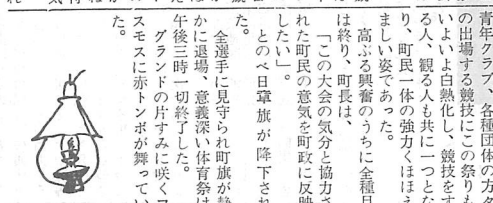 青年クラブ、各種団体の方々
の出場する競技にこの祭りも
いよいよ白熱化し、競技をす
る人、観る人も共に一つとな
り、町民一体の強力くほほえ
ましい姿であった。
高ぶる興奮のうちに全種目
は終り、町長は、
「この大会の気分と協力さ
れた町民の意気を町政に反映
したい」。
とのべ日章旗が降下され
た。
全選手に見守られ町旗が静
かに退場、意義深い体育祭は
午後三時一切終了した。
グランドの片すみに咲くコ
スモスに赤トンボが舞ってい
た。